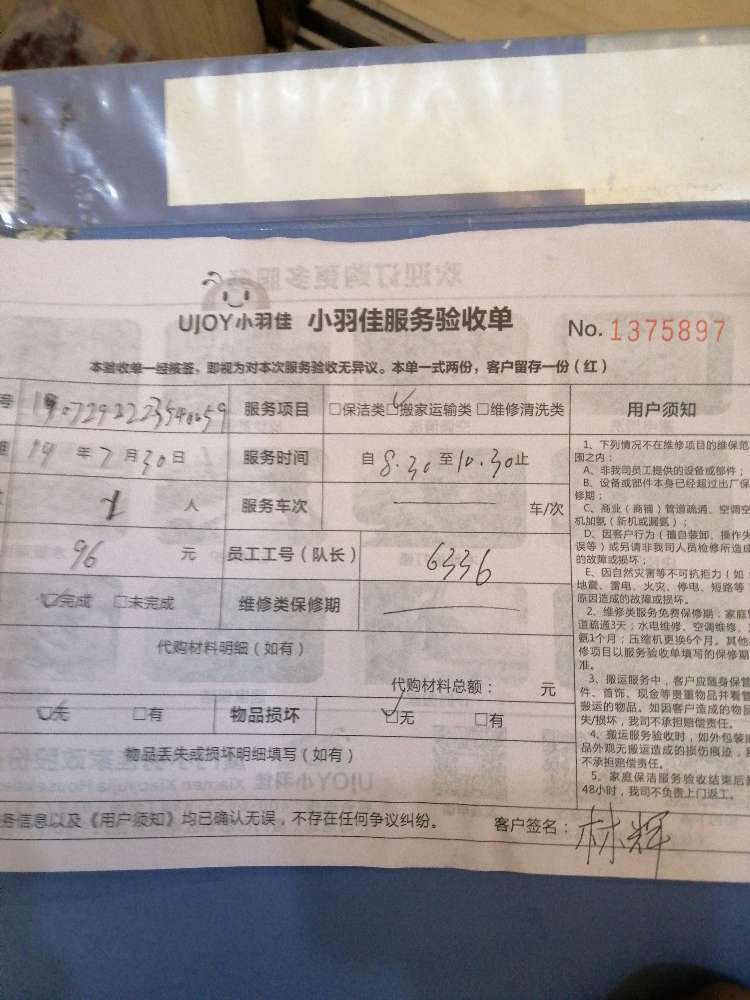 UJOY小羽佳 小羽佳服务验收单 No. 1375897
本验收单一经被签，即视为对本次服务验收无异议。本单一式两份，客户留存一份（红）
号 服务项目 □保洁类 ☑搬家运输类 □维修清洗类 用户须知
19 年 7 月 30 日 服务时间 自 8.30 至 10.30 止
1 人 服务车次 车/次
96 元 员工工号（队长） 6336
☑完成 □未完成 维修类保修期
代购材料明细（如有）
代购材料总额： 元
☑无 □有 物品损坏 ☑无 □有
物品丢失或损坏明细填写（如有）
务信息以及《用户须知》均已确认无误，不存在任何争议纠纷。 客户签名：林辉
1、下列情况不在维修项目的维保范
围之内：
A、非我司员工提供的设备或部件；
B、设备或部件本身已经超过出厂保
修期；
C、商业（商铺）管道疏通、空调空
机加氨（新机或漏氨）；
D、因客户行为（擅自装卸、操作失
误等）或另请非我司人员检修所造成
的故障或损坏；
E、因自然灾害等不可抗拒力（如：
地震、雷电、火灾、停电、短路等
原因造成的故障或损坏。
2、维修类服务免费保修期：家庭管
道疏通3天；水电维修、空调维修、
氨1个月；压缩机更换6个月。其他
修项目以服务验收单填写的保修期
准。
3、搬运服务中，客户应随身保管
件、首饰、现金等贵重物品并看管
搬运的物品。如因客户造成的物品
失/损坏，我司不承担赔偿责任。
4、搬运服务验收时，如外包装
品外观无搬运造成的损伤痕迹，
不承担赔偿责任。
5、家庭保洁服务验收结束后
48小时，我司不负责上门返工。